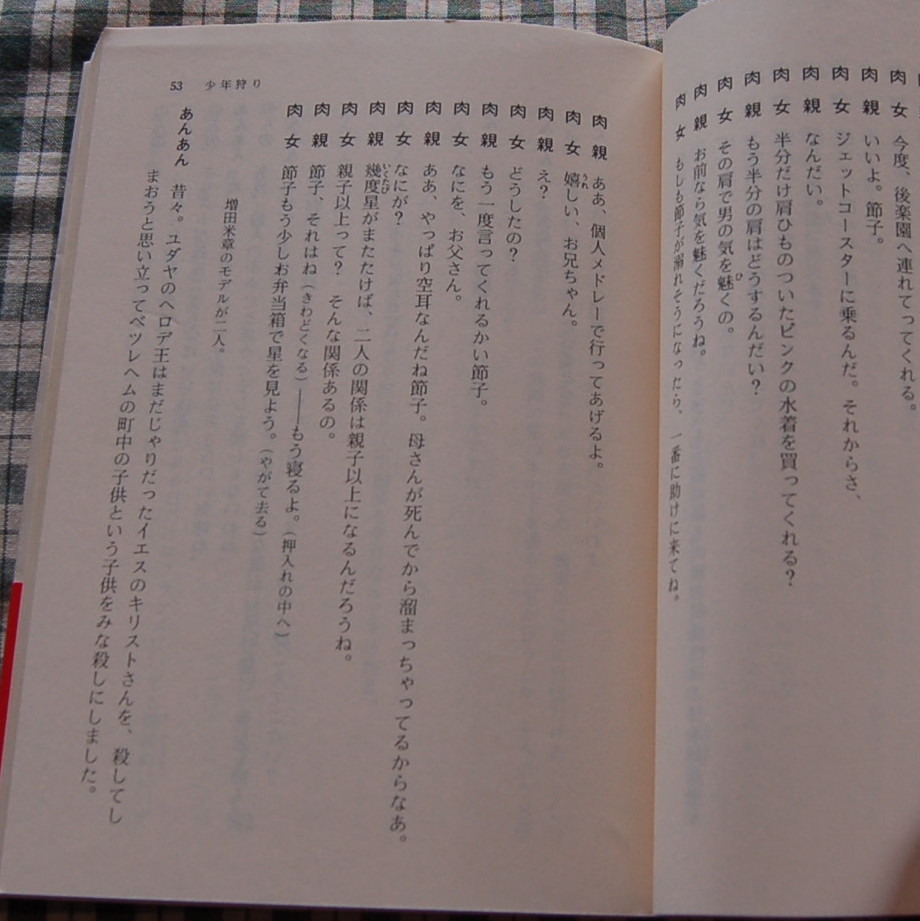 肉女　今度、後楽園へ連れてってくれる。
肉親　いいよ。節子。
肉女　ジェットコースターに乗るんだ。それからさ、
肉親　なんだい。
肉女　半分だけ肩ひものついたピンクの水着を買ってくれる？
肉親　もう半分の肩はどうするんだい？
肉女　その肩で男の気を魅くの。
肉親　お前なら気を魅くだろうね。
肉女　もしも節子が溺れそうになったら、一番に助けに来てね。
53　少年狩り
肉親　ああ、個人メドレーで行ってあげるよ。
肉女　嬉しい、お兄ちゃん。
肉親　え？
肉女　どうしたの？
肉親　もう一度言ってくれるかい節子。
肉女　なにを、お父さん。
肉親　ああ、やっぱり空耳なんだね節子。母さんが死んでから溜まっちゃってるからなあ。
肉女　なにが？
肉親　幾度星がまたたけば、二人の関係は親子以上になるんだろうね。
肉女　親子以上って？　そんな関係あるの。
肉親　節子、それはね（きわどくなる）――もう寝るよ。（押入れの中へ）
肉女　節子もう少しお弁当箱で星を見よう。（やがて去る）
増田米章のモデルが二人。
あんあん　昔々。ユダヤのヘロデ王はまだじゃりだったイエスのキリストさんを、殺してし
まおうと思い立ってベツレヘムの町中の子供という子供をみな殺しにしました。